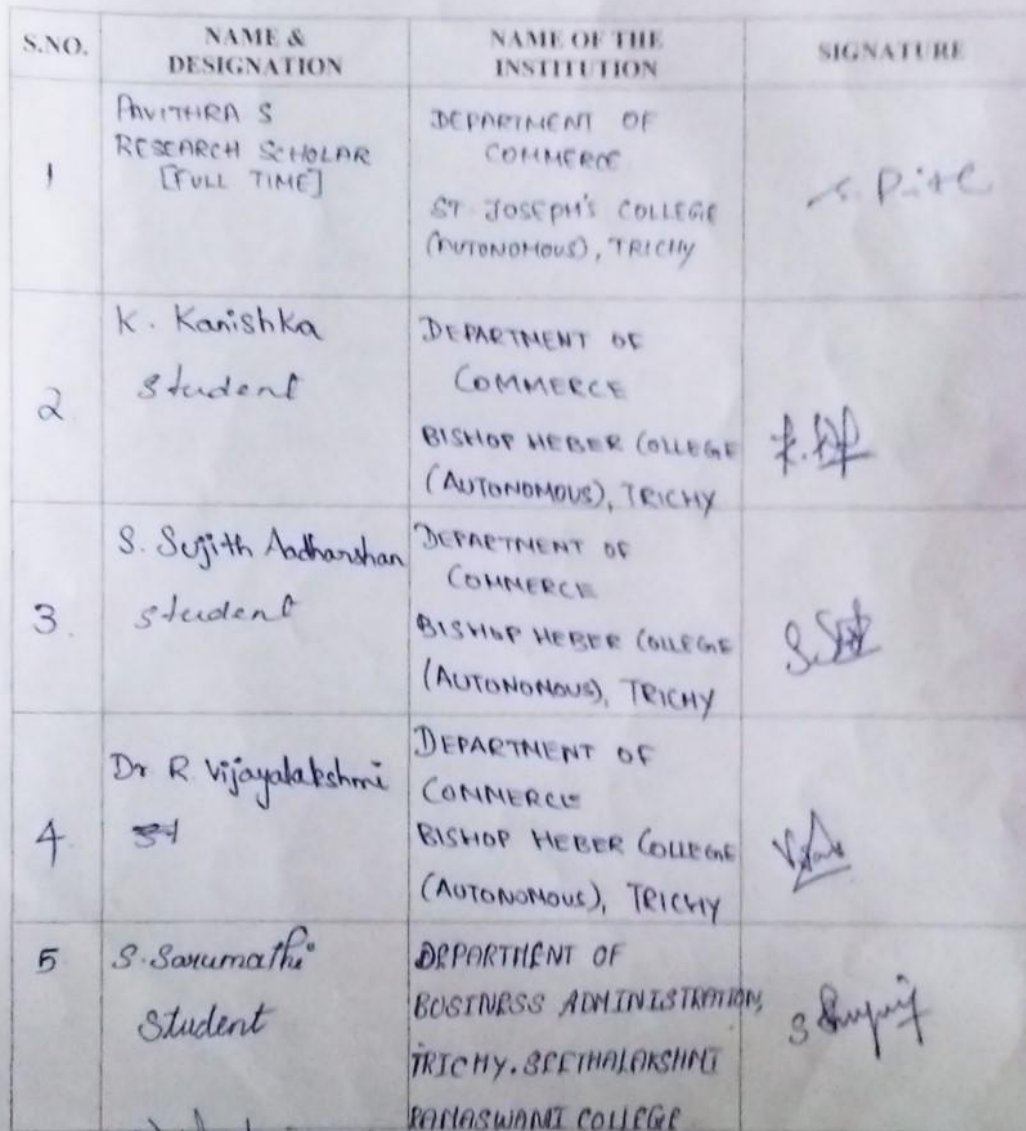 S.NO. NAME & DESIGNATION NAME OF THE INSTITUTION SIGNATURE
1
PAVITHRA S
RESEARCH SCHOLAR
[FULL TIME]
DEPARTMENT OF
COMMERCE
ST. JOSEPH'S COLLEGE
(AUTONOMOUS), TRICHY
2
K. Kanishka
student
DEPARTMENT OF
COMMERCE
BISHOP HEBER COLLEGE
(AUTONOMOUS), TRICHY
3.
S. Sujith Aadharshan
student
DEPARTMENT OF
COMMERCE
BISHOP HEBER COLLEGE
(AUTONOMOUS), TRICHY
4.
Dr R. Vijayalakshmi
DEPARTMENT OF
COMMERCE
BISHOP HEBER COLLEGE
(AUTONOMOUS), TRICHY
5
S. Sarumathi
Student
DEPARTMENT OF
BUSINESS ADMINISTRATION,
TRICHY. SEETHALAKSHMI
RAMASWAMI COLLEGE